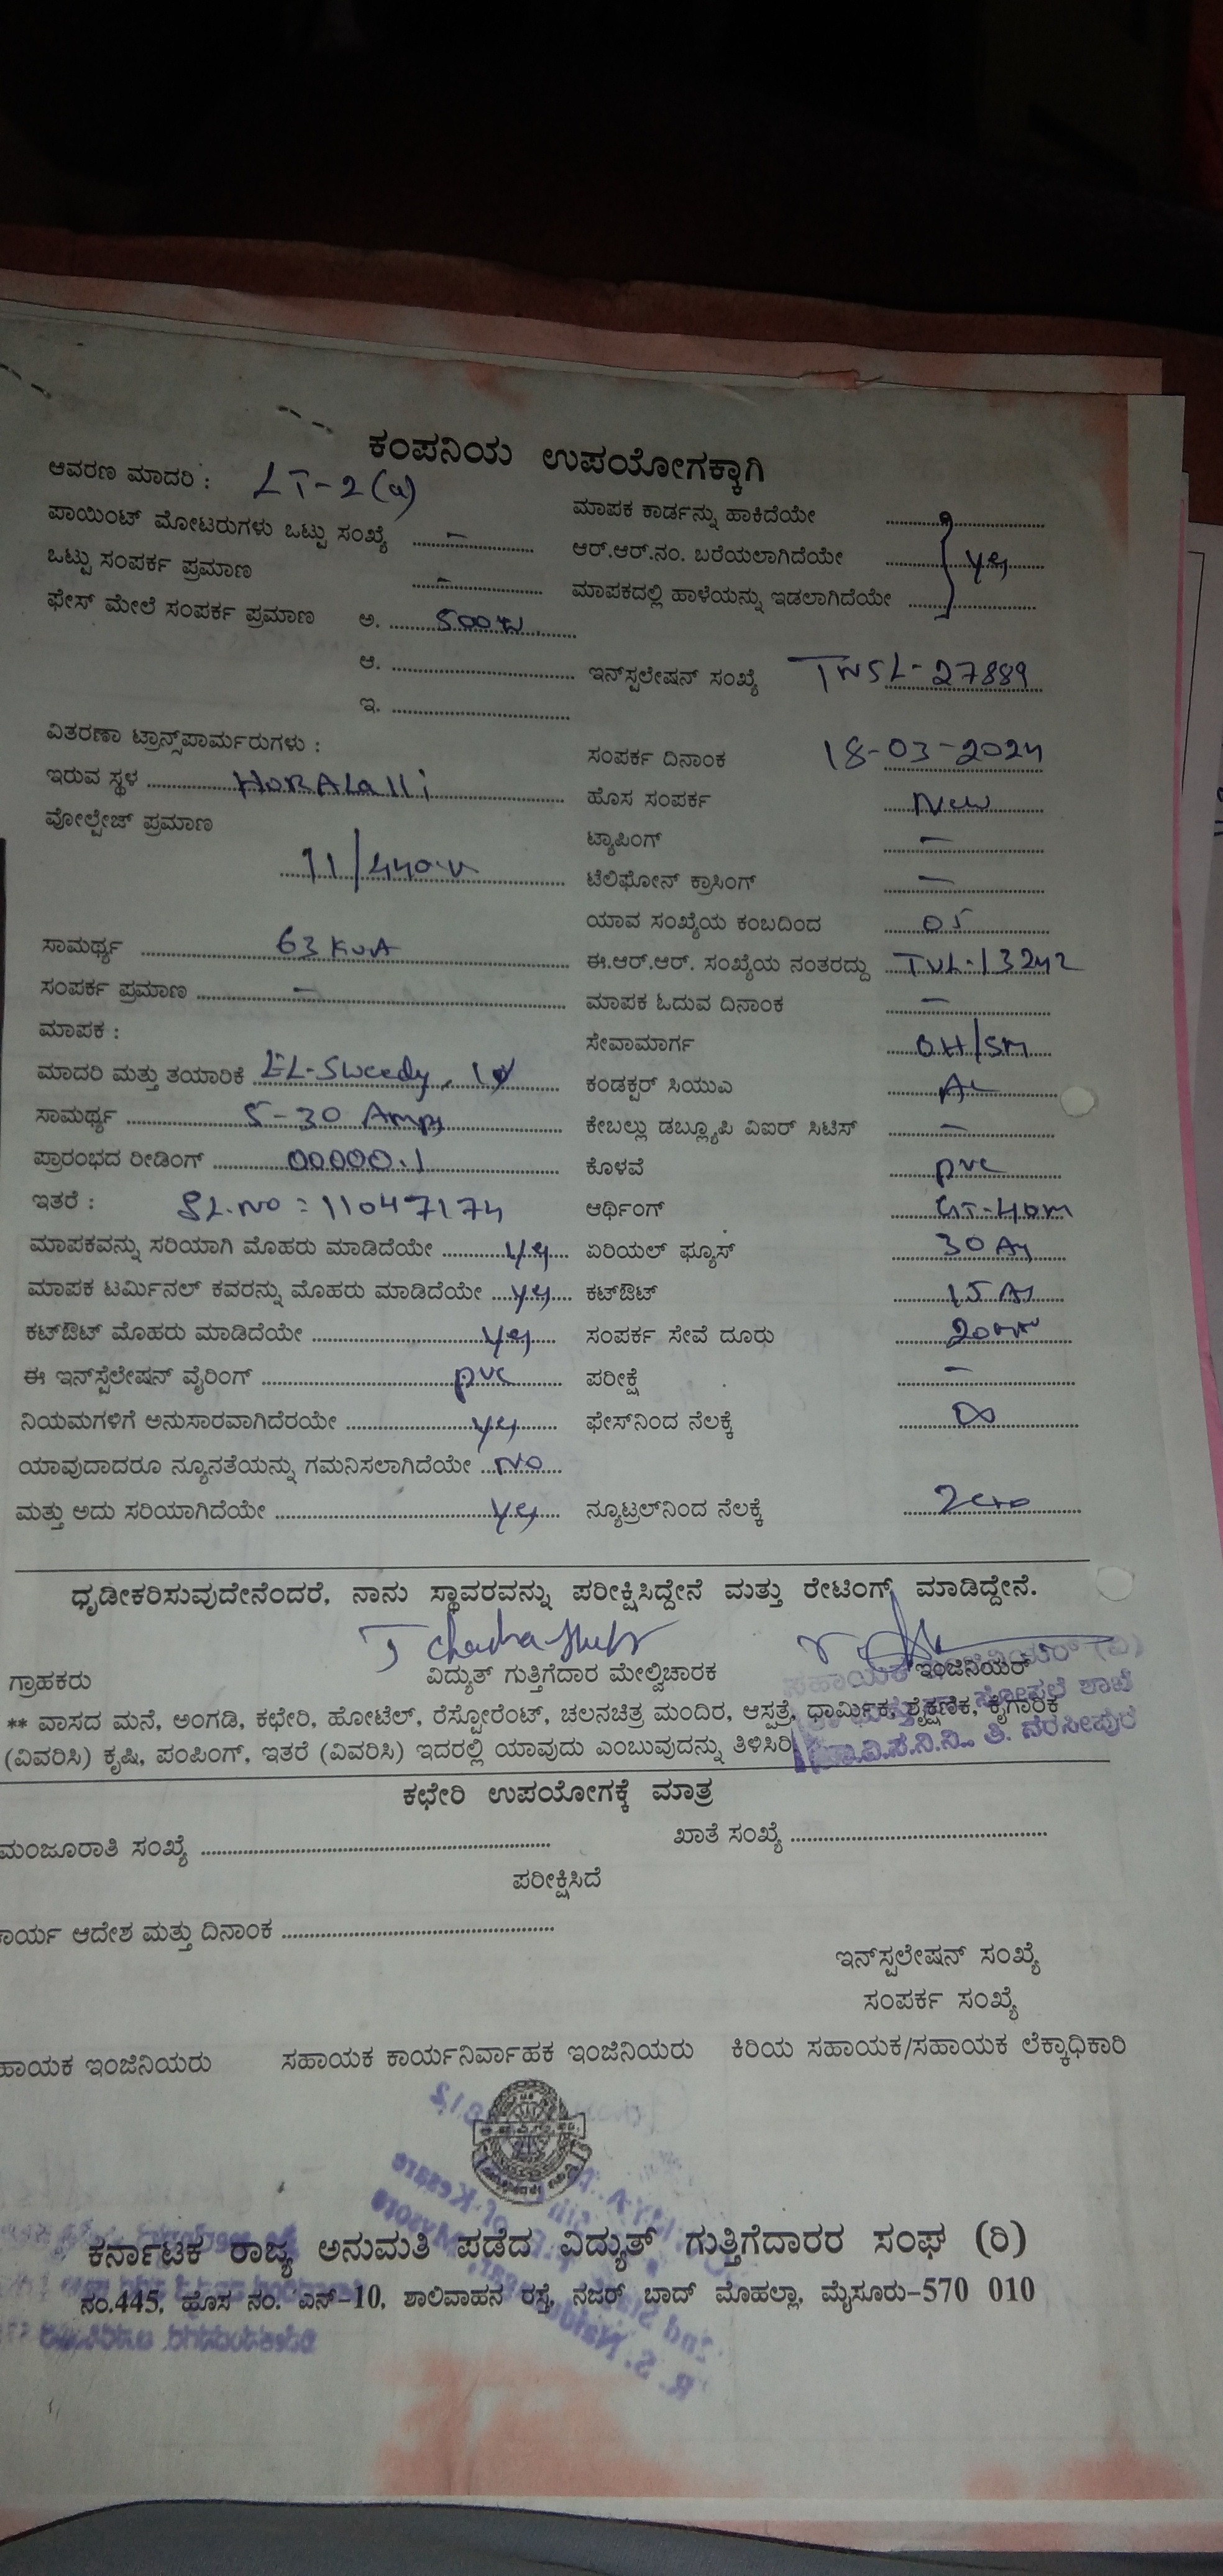 ಕಂಪನಿಯ ಉಪಯೋಗಕ್ಕಾಗಿ
ಆವರಣ ಮಾದರಿ : LT-2(a)
ಮಾಪಕ ಕಾರ್ಡನ್ನು ಹಾಕಿದೆಯೇ
ಪಾಯಿಂಟ್ ಮೋಟರುಗಳು ಒಟ್ಟು ಸಂಖ್ಯೆ -
ಆರ್.ಆರ್.ನಂ. ಬರೆಯಲಾಗಿದೆಯೇ yes
ಒಟ್ಟು ಸಂಪರ್ಕ ಪ್ರಮಾಣ -
ಮಾಪಕದಲ್ಲಿ ಹಾಳೆಯನ್ನು ಇಡಲಾಗಿದೆಯೇ
ಫೇಸ್ ಮೇಲೆ ಸಂಪರ್ಕ ಪ್ರಮಾಣ ಅ. 500w
ಆ.
ಇನ್‌ಸ್ಪಲೇಷನ್ ಸಂಖ್ಯೆ TNSL-27889
ಇ.
ವಿತರಣಾ ಟ್ರಾನ್ಸ್‌ಪಾರ್ಮರುಗಳು :
ಸಂಪರ್ಕ ದಿನಾಂಕ 18-03-2024
ಇರುವ ಸ್ಥಳ HORALalli
ಹೊಸ ಸಂಪರ್ಕ New
ವೋಲ್ಟೇಜ್ ಪ್ರಮಾಣ
ಟ್ಯಾಪಿಂಗ್ -
11/440.v
ಟೆಲಿಫೋನ್ ಕ್ರಾಸಿಂಗ್ -
ಯಾವ ಸಂಖ್ಯೆಯ ಕಂಬದಿಂದ 05
ಸಾಮರ್ಥ್ಯ 63 KVA
ಈ.ಆರ್.ಆರ್. ಸಂಖ್ಯೆಯ ನಂತರದ್ದು TVL-13242
ಸಂಪರ್ಕ ಪ್ರಮಾಣ -
ಮಾಪಕ ಓದುವ ದಿನಾಂಕ -
ಮಾಪಕ :
ಸೇವಾಮಾರ್ಗ OH/SM
ಮಾದರಿ ಮತ್ತು ತಯಾರಿಕೆ EL-Sweedy, 1ϕ
ಕಂಡಕ್ಟರ್ ಸಿಯುಎ AL
ಸಾಮರ್ಥ್ಯ 5-30 Amps
ಕೇಬಲ್ಲು ಡಬ್ಲ್ಯೂಪಿ ವಿಐರ್ ಸಿಟಿಸ್ -
ಪ್ರಾರಂಭದ ರೀಡಿಂಗ್ 00000.1
ಕೊಳವೆ pvc
ಇತರೆ : SL.NO = 11047174
ಆರ್ಥಿಂಗ್
ಮಾಪಕವನ್ನು ಸರಿಯಾಗಿ ಮೊಹರು ಮಾಡಿದೆಯೇ yes
ಏರಿಯಲ್ ಫ್ಯೂಸ್ 30 A
ಮಾಪಕ ಟರ್ಮಿನಲ್ ಕವರನ್ನು ಮೊಹರು ಮಾಡಿದೆಯೇ yes
ಕಟ್‌ಔಟ್ 15 A
ಕಟ್‌ಔಟ್ ಮೊಹರು ಮಾಡಿದೆಯೇ yes
ಸಂಪರ್ಕ ಸೇವೆ ದೂರು
ಈ ಇನ್‌ಸ್ಟೆಲೇಷನ್ ವೈರಿಂಗ್ pvc
ಪರೀಕ್ಷೆ -
ನಿಯಮಗಳಿಗೆ ಅನುಸಾರವಾಗಿದೆರಯೇ yes
ಫೇಸ್‌ನಿಂದ ನೆಲಕ್ಕೆ ∞
ಯಾವುದಾದರೂ ನ್ಯೂನತೆಯನ್ನು ಗಮನಿಸಲಾಗಿದೆಯೇ NO
ಮತ್ತು ಅದು ಸರಿಯಾಗಿದೆಯೇ yes
ನ್ಯೂಟ್ರಲ್‌ನಿಂದ ನೆಲಕ್ಕೆ Zero
ಧೃಡೀಕರಿಸುವುದೇನೆಂದರೆ, ನಾನು ಸ್ಥಾವರವನ್ನು ಪರೀಕ್ಷಿಸಿದ್ದೇನೆ ಮತ್ತು ರೇಟಿಂಗ್ ಮಾಡಿದ್ದೇನೆ.
ಗ್ರಾಹಕರು ವಿದ್ಯುತ್ ಗುತ್ತಿಗೆದಾರ ಮೇಲ್ವಿಚಾರಕ ಇಂಜಿನಿಯರ್
** ವಾಸದ ಮನೆ, ಅಂಗಡಿ, ಕಛೇರಿ, ಹೋಟೆಲ್, ರೆಸ್ಟೋರೆಂಟ್, ಚಲನಚಿತ್ರ ಮಂದಿರ, ಆಸ್ಪತ್ರೆ, ಧಾರ್ಮಿಕ, ಶೈಕ್ಷಣಿಕ, ಕೈಗಾರಿಕೆ
(ವಿವರಿಸಿ) ಕೃಷಿ, ಪಂಪಿಂಗ್, ಇತರೆ (ವಿವರಿಸಿ) ಇದರಲ್ಲಿ ಯಾವುದು ಎಂಬುವುದನ್ನು ತಿಳಿಸಿರಿ
ತಿ. ನರಸೀಪುರ
ಕಛೇರಿ ಉಪಯೋಗಕ್ಕೆ ಮಾತ್ರ
ಮಂಜೂರಾತಿ ಸಂಖ್ಯೆ ಖಾತೆ ಸಂಖ್ಯೆ
ಪರೀಕ್ಷಿಸಿದೆ
ಾರ್ಯ ಆದೇಶ ಮತ್ತು ದಿನಾಂಕ
ಇನ್‌ಸ್ಪಲೇಷನ್ ಸಂಖ್ಯೆ
ಸಂಪರ್ಕ ಸಂಖ್ಯೆ
ಹಾಯಕ ಇಂಜಿನಿಯರು ಸಹಾಯಕ ಕಾರ್ಯನಿರ್ವಾಹಕ ಇಂಜಿನಿಯರು ಕಿರಿಯ ಸಹಾಯಕ/ಸಹಾಯಕ ಲೆಕ್ಕಾಧಿಕಾರಿ
ಕರ್ನಾಟಕ ರಾಜ್ಯ ಅನುಮತಿ ಪಡೆದ ವಿದ್ಯುತ್ ಗುತ್ತಿಗೆದಾರರ ಸಂಘ (ರಿ)
ನಂ.445, ಹೊಸ ನಂ. ಎನ್-10, ಶಾಲಿವಾಹನ ರಸ್ತೆ, ನಜರ್ ಬಾದ್ ಮೊಹಲ್ಲಾ, ಮೈಸೂರು-570 010